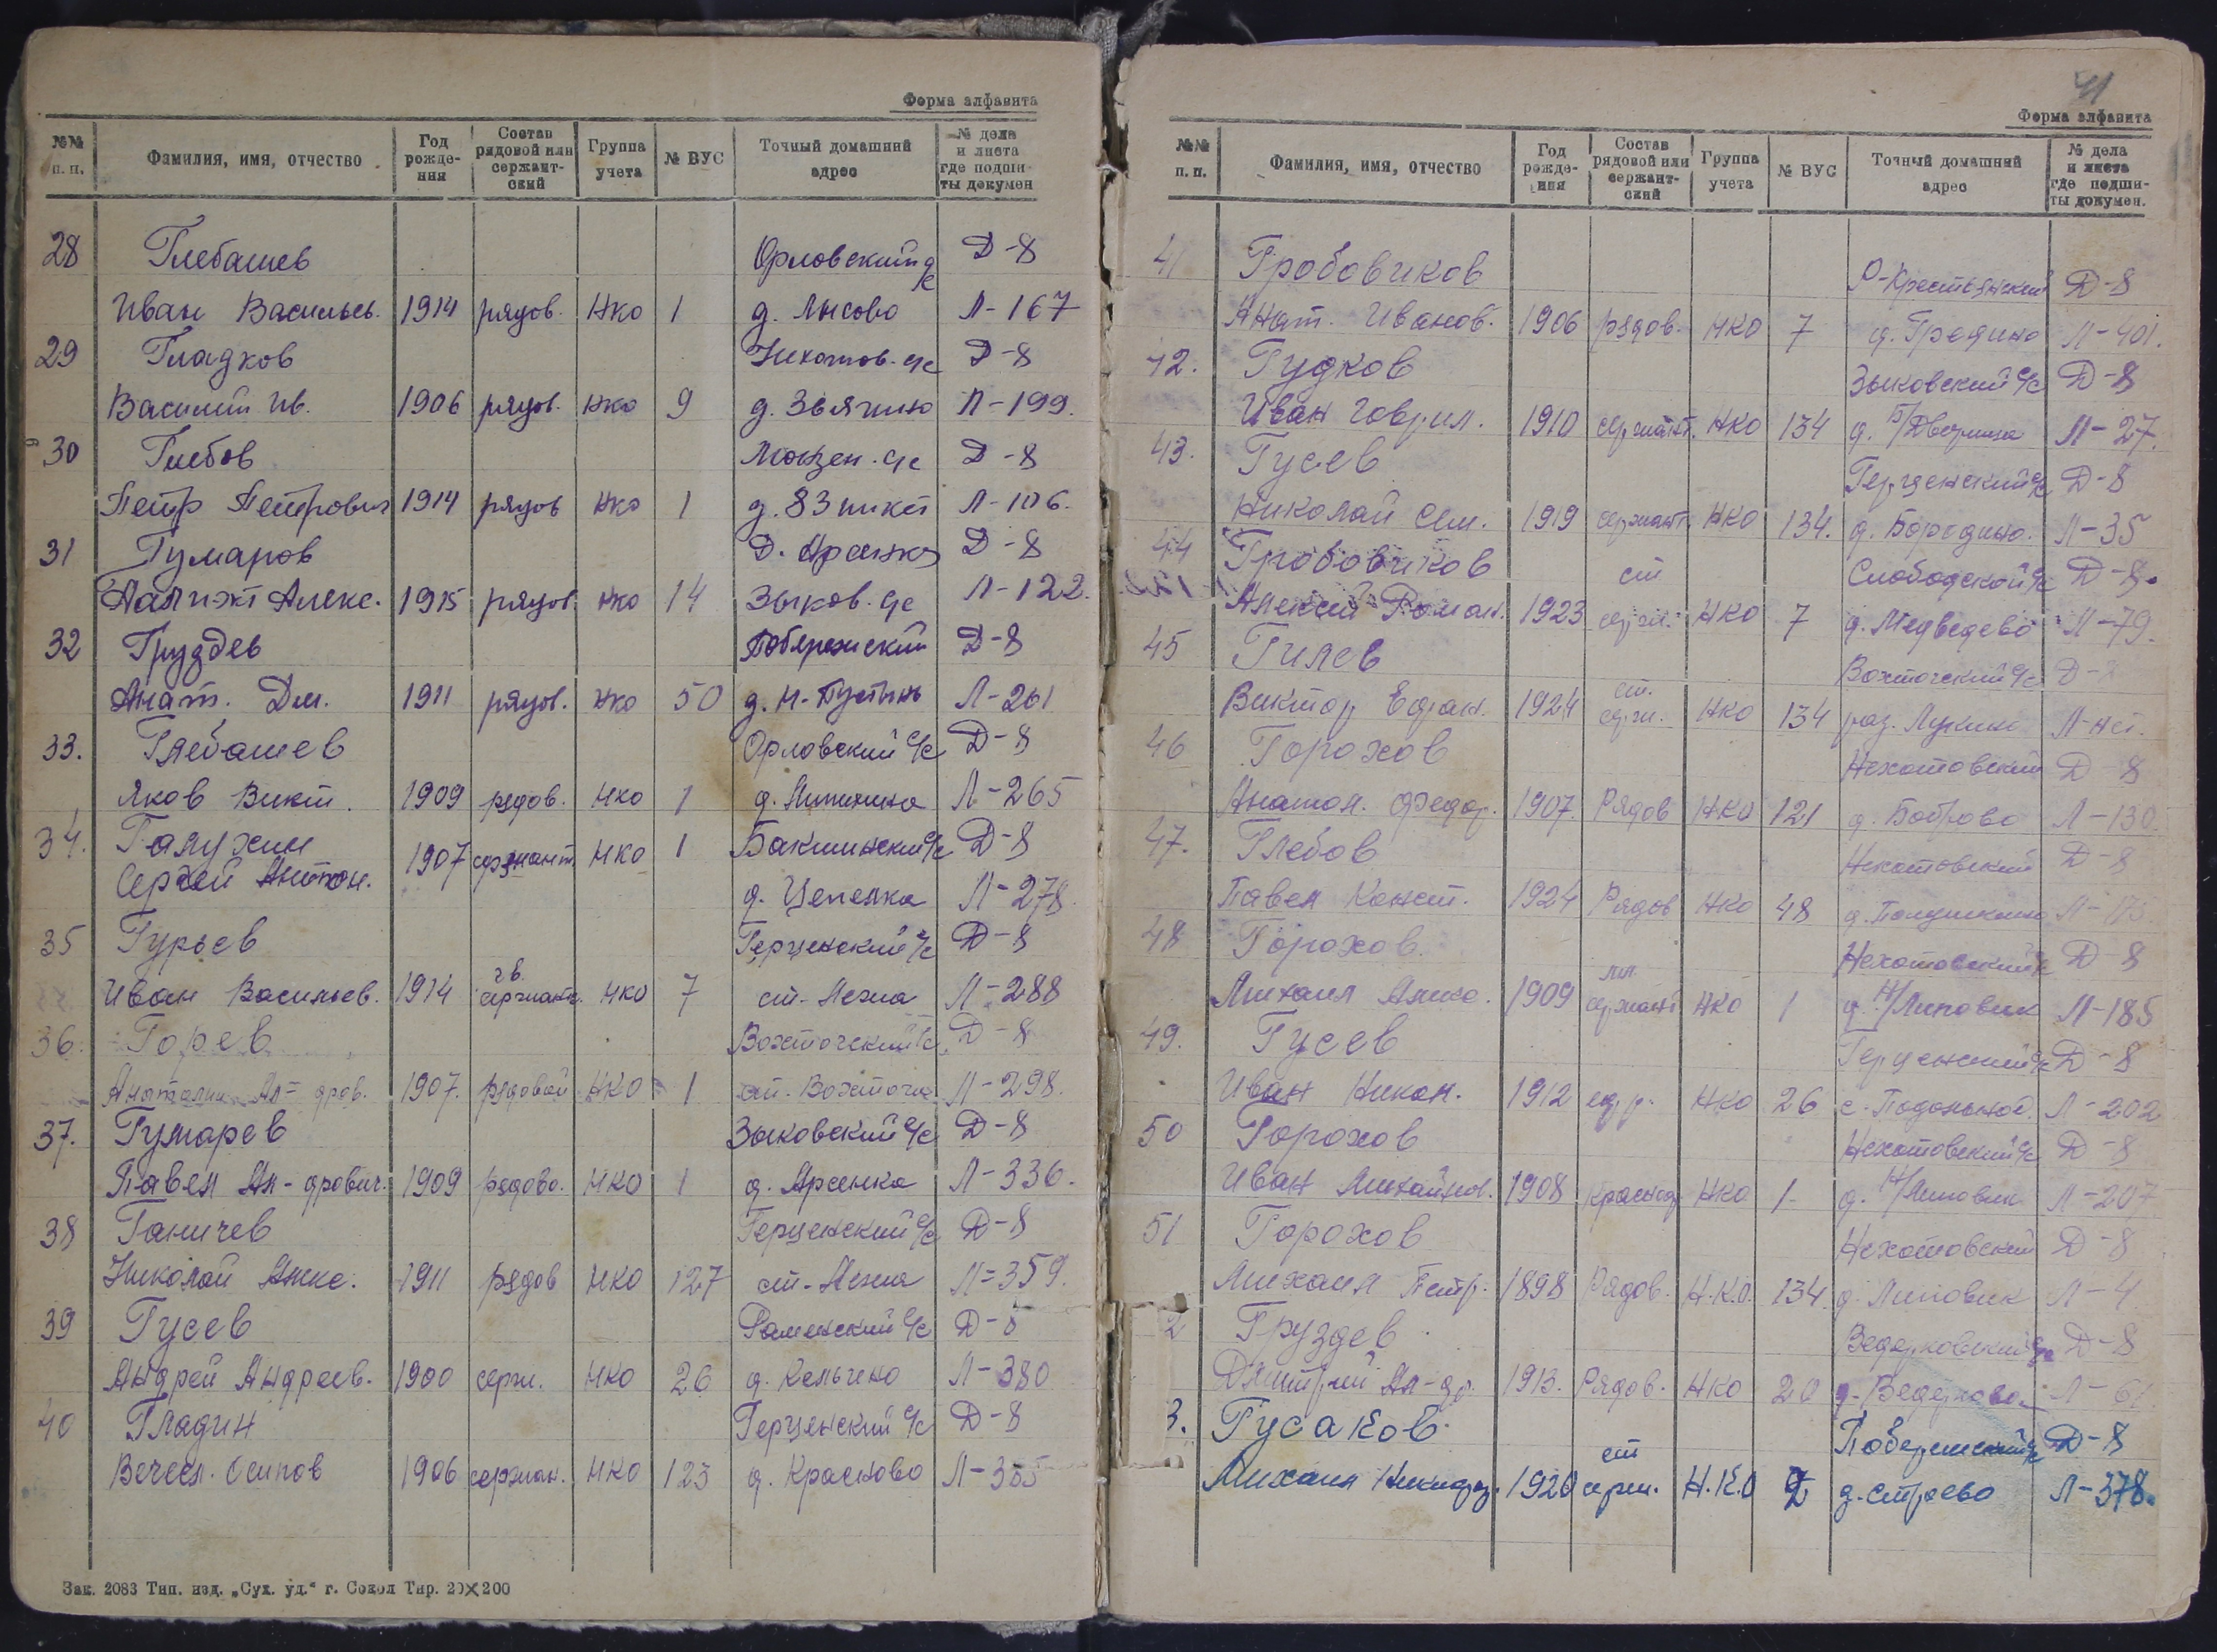 Форма алфавита
№№ п. п. Фамилия, имя, отчество Год рождения Состав рядовой или сержантский Группа учета № ВУС Точный домашний адрес № дела и листа где подшиты докумен
28 Глебашев Орловский с/с Д-8
Иван Васильев. 1914 рядов. НКО 1 д. Лысово Л-167
29 Гладков Нехотов. с/с Д-8
Василий Ив. 1906 рядов. НКО 9 д. Звягино Л-199.
30 Глебов с/с Д-8
Петр Петрович 1914 рядов НКО 1 д. 83 пикет Л-106.
31 Гумаров Д. Арсенка Д-8
Алекс. 1915 рядов. НКО 14 Зыков. с/с Л-122.
32 Груздев Побережский Д-8
Анат. Дм. 1911 рядов. НКО 50 д. Н-Пустынь Л-261
33. Глебашев Орловский с/с Д-8
Яков Викт. 1909 рядов. НКО 1 д. Л-265
34. Галухин Бакшинский с/с Д-8
Сергей Антон. 1907 сержант НКО 1 д. Цепелка Л-278.
35 Гурьев Герценский с/с Д-8
Иван Васильев. 1914 гв сержант. НКО 7 ст. Лежа Л-288
36. Горев Вохтогский с/с Д-8
Анатолий Ал-дров. 1907. рядовой НКО 1 ст. Вохтога Л-298.
37. Гумарев Зыковский с/с Д-8
Павел Ал-дрович. 1909 рядово. НКО 1 д. Арсенка Л-336.
38 Ганичев Герценский с/с Д-8
Николай Алекс. 1911 рядов НКО 127 ст. Лежа Л-359.
39 Гусев Раменский с/с Д-8
Андрей Андреев. 1900 серж. НКО 26 д. Кельчено Л-380
40 Гладин Герценский с/с Д-8
Вячесл. Осипов 1906 сержан. НКО 123 д. Красново Л-385
Зак. 2083 Тип. изд. „Сух. уд.“ г. Сокол Тир. 20×200
41
Форма алфавита
№№ п. п. Фамилия, имя, отчество Год рождения Состав рядовой или сержантский Группа учета № ВУС Точный домашний адрес № дела и листа где подшиты докумен.
41 Гробовиков Р-Крестьянский Д-8
Анат. Иванов. 1906 рядов. НКО 7 д. Гредино Л-401.
42. Гудков Зыковский с/с Д-8
Иван Гаврил. 1910 сержант. НКО 134 д. Б/Дворища Л-27.
43. Гусев Герценский с/с Д-8
Николай Сем. 1919 сержант НКО 134. д. Бородино. Л-35
44 Гробовиков ст Слободской с/с Д-8.
Алексей Роман. 1923 серж. НКО 7 д. Медведево Л-79.
45 Гилев Вохтогский с/с Д-8
Виктор 1924 ст. серж. НКО 134 раз. Лукино
46 Горохов Нехотовский Д-8
Анатол. Федор. 1907. Рядов НКО 121 д. Л-130.
47. Глебов Нехотовский Д-8
Павел Конст. 1924 Рядов НКО 48 д. Л-175
48 Горохов Нехотовский с/с Д-8
Михаил Алекс. 1909 мл сержант НКО 1 д. Н/Липовик Л-185
49. Гусев Герценский с/с Д-8
Иван Никон. 1912 НКО 26 с. Л-202
50 Горохов Нехотовский с/с Д-8
Иван Михайлов. 1908 красноар НКО 1- д. Н/Липовик Л-207
51 Горохов Нехотовский Д-8
Михаил Петр. 1898 Рядов. Н.К.О. 134. д. Липовик Л-4
2 Груздев Ведерковский с/с Д-8
Дмитрий Ал-др. 1913. Рядов. НКО 20 д. Ведерково Л-61
3. Гусаков Побережский с/с Д-8
Михаил Никандр. 1920 ст серж. Н.К.О 2 д. Строево Л-378.